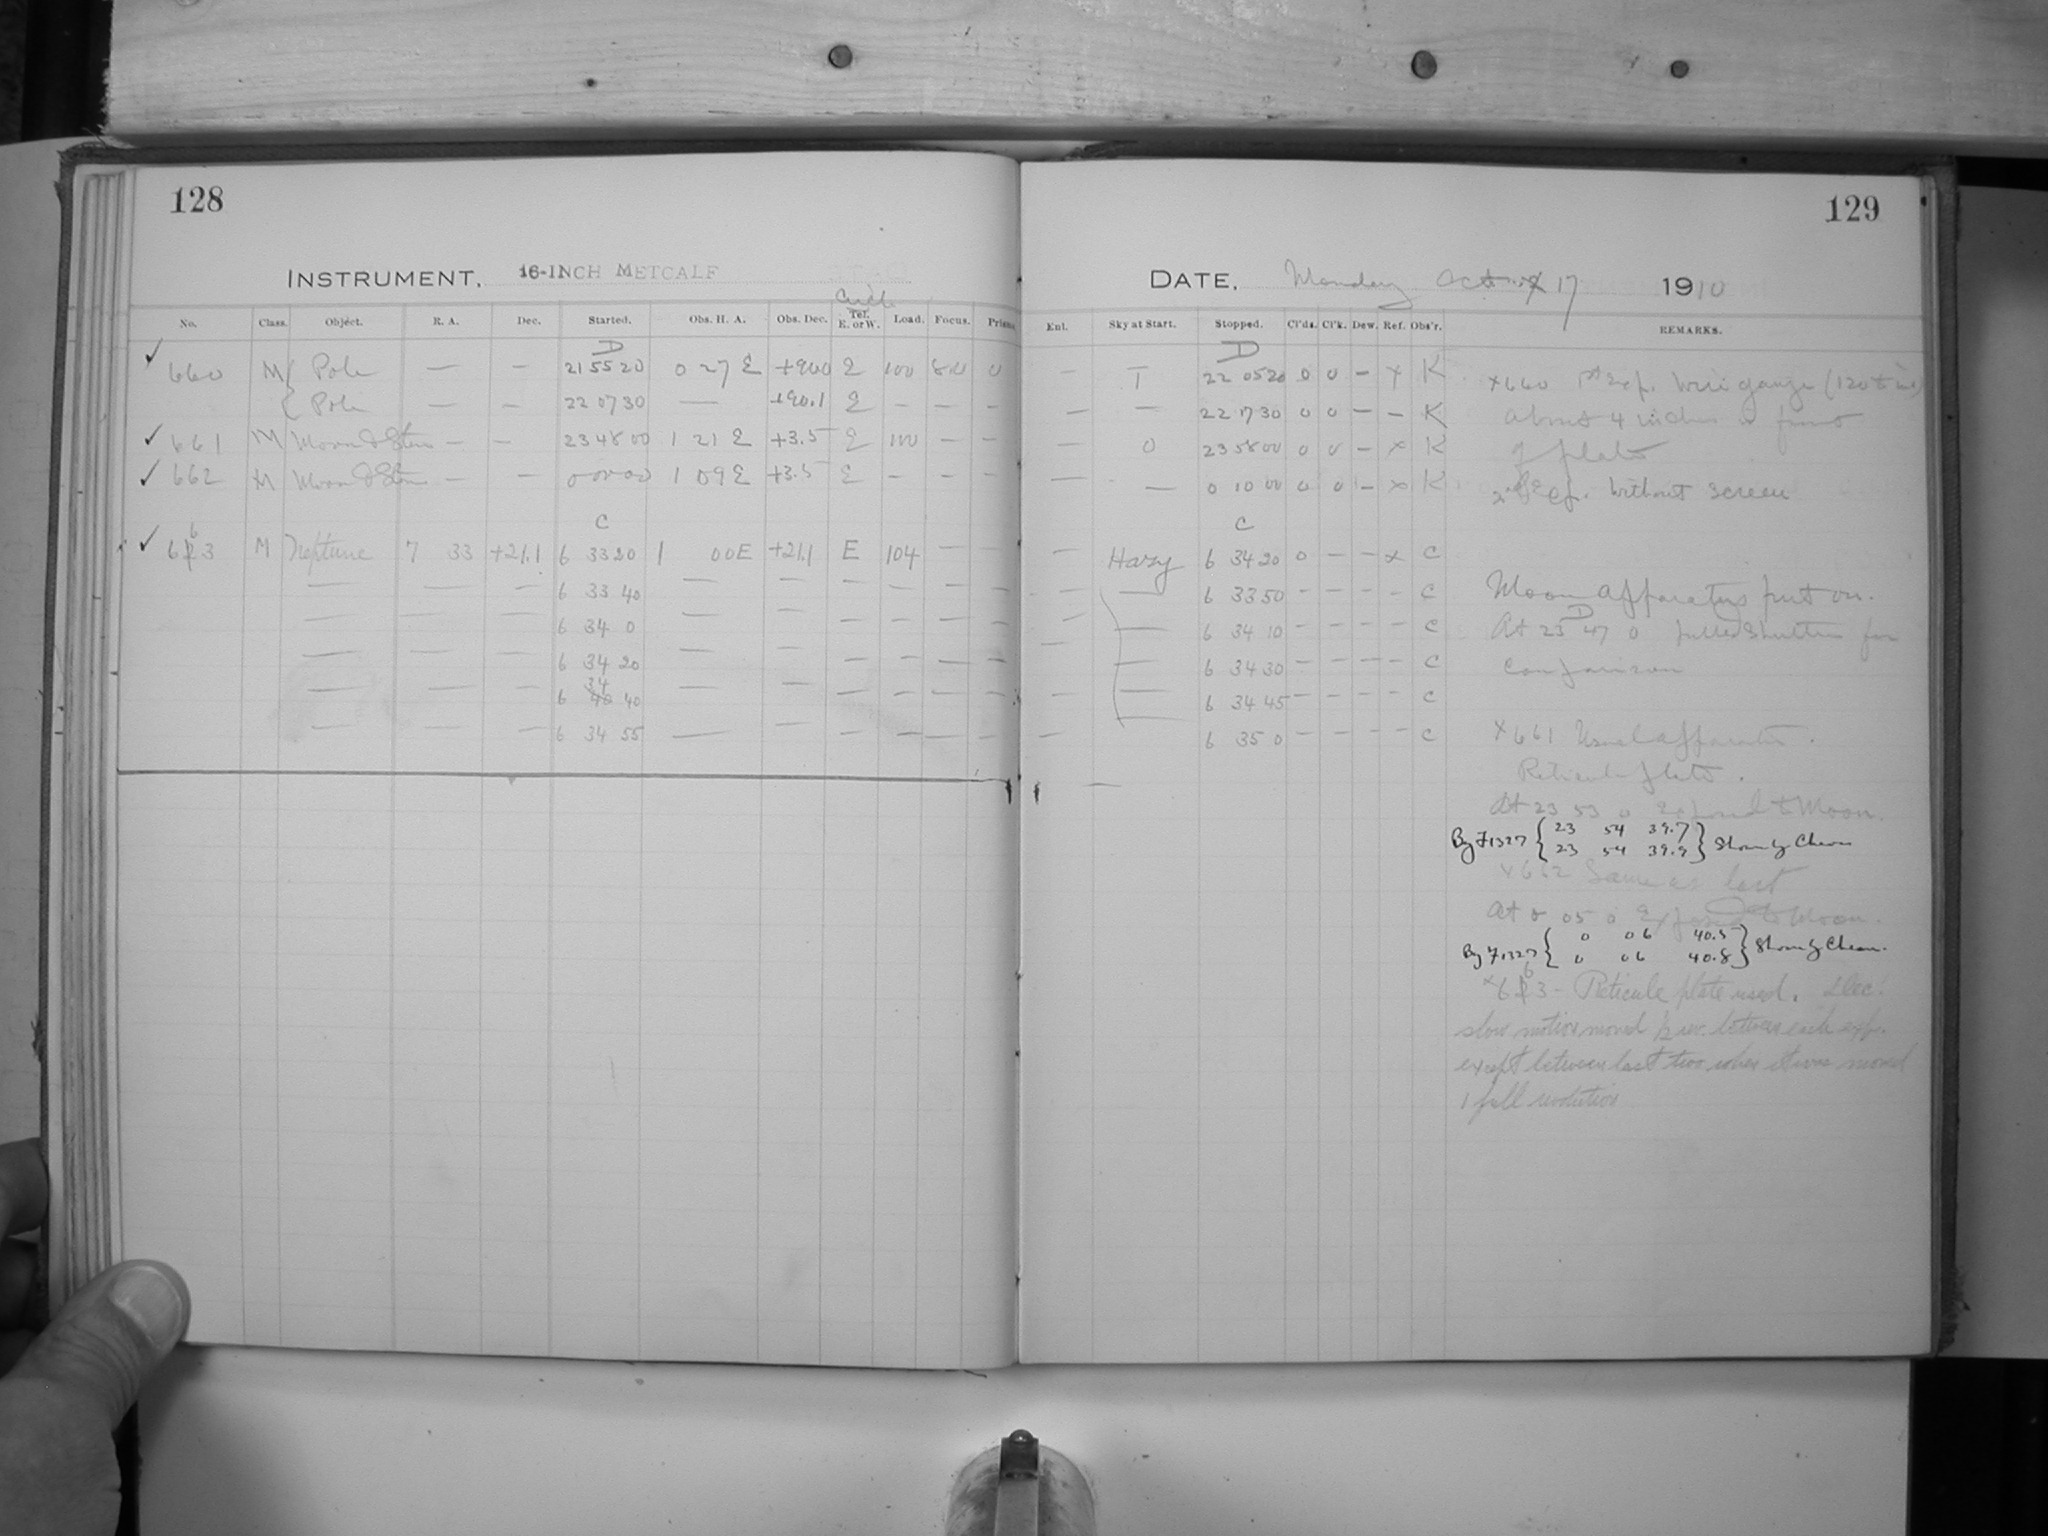 128
INSTRUMENT. 16-INCH METCALF
Circle
No. Class. Object. R. A. Dec. Started. Obs. H. A. Obs. Dec. Tel. E. or W. Load. Focus. Prism
D
✓ 660 M { Pole — — 21 55 20 0 27 E +90.0 E 100 8.0 0
{ Pole — — 22 07 30 — +90.1 E — — —
✓ 661 M Moon & Stars — — 23 48 00 1 21 E +3.5 E 100 — —
✓ 662 M Moon & Stars — — 0 00 00 1 09 E +3.5 E — — —
C
✓ 663 M Neptune 7 33 +21.1 6 33 20 1 00 E +21.1 E 104 — —
— — — 6 33 40 — — — — — —
— — — 6 34 0 — — — — — —
— — — 6 34 20 — — — — — —
— — — 6 34 40 — — — — — —
— — — 6 34 55 — — — — — —
129
DATE. Monday Oct. 17 1910
Enl. Sky at Start. Stopped. Cl'ds. Cl'k. Dew. Ref. Obs'r. REMARKS.
D
— T 22 05 20 0 0 — x K
— — 22 17 30 0 0 — — K
— 0 23 58 00 0 0 — x K
— — 0 10 00 0 0 — x K
C
— Hazy 6 34 20 0 — — x C
— — 6 33 50 — — — — C
— — 6 34 10 — — — — C
— — 6 34 30 — — — — C
— — 6 34 45 — — — — C
— — 6 35 0 — — — — C
x660 1st Exp. Wire gauze (120 to in)
about 4 inches in front
of plate
2nd Exp. Without screen
Moon apparatus put on.
D
At 23 47 0 pulled Shutter for
Comparison
x661 Usual apparatus.
Reticule plate.
At 23 53 0 Exposed to Moon.
By F1327 { 23 54 39.7 } Shown by Chron
23 54 39.9
x662 Same as last
At 0 05 0 Exposed to Moon.
By F1327 { 0 06 40.5 } Shown by Chron.
0 06 40.8
x663 - Reticule plate used. Dec.
slow motion moved ½ rev. between each exp.
except between last two when it was moved
1 full revolution